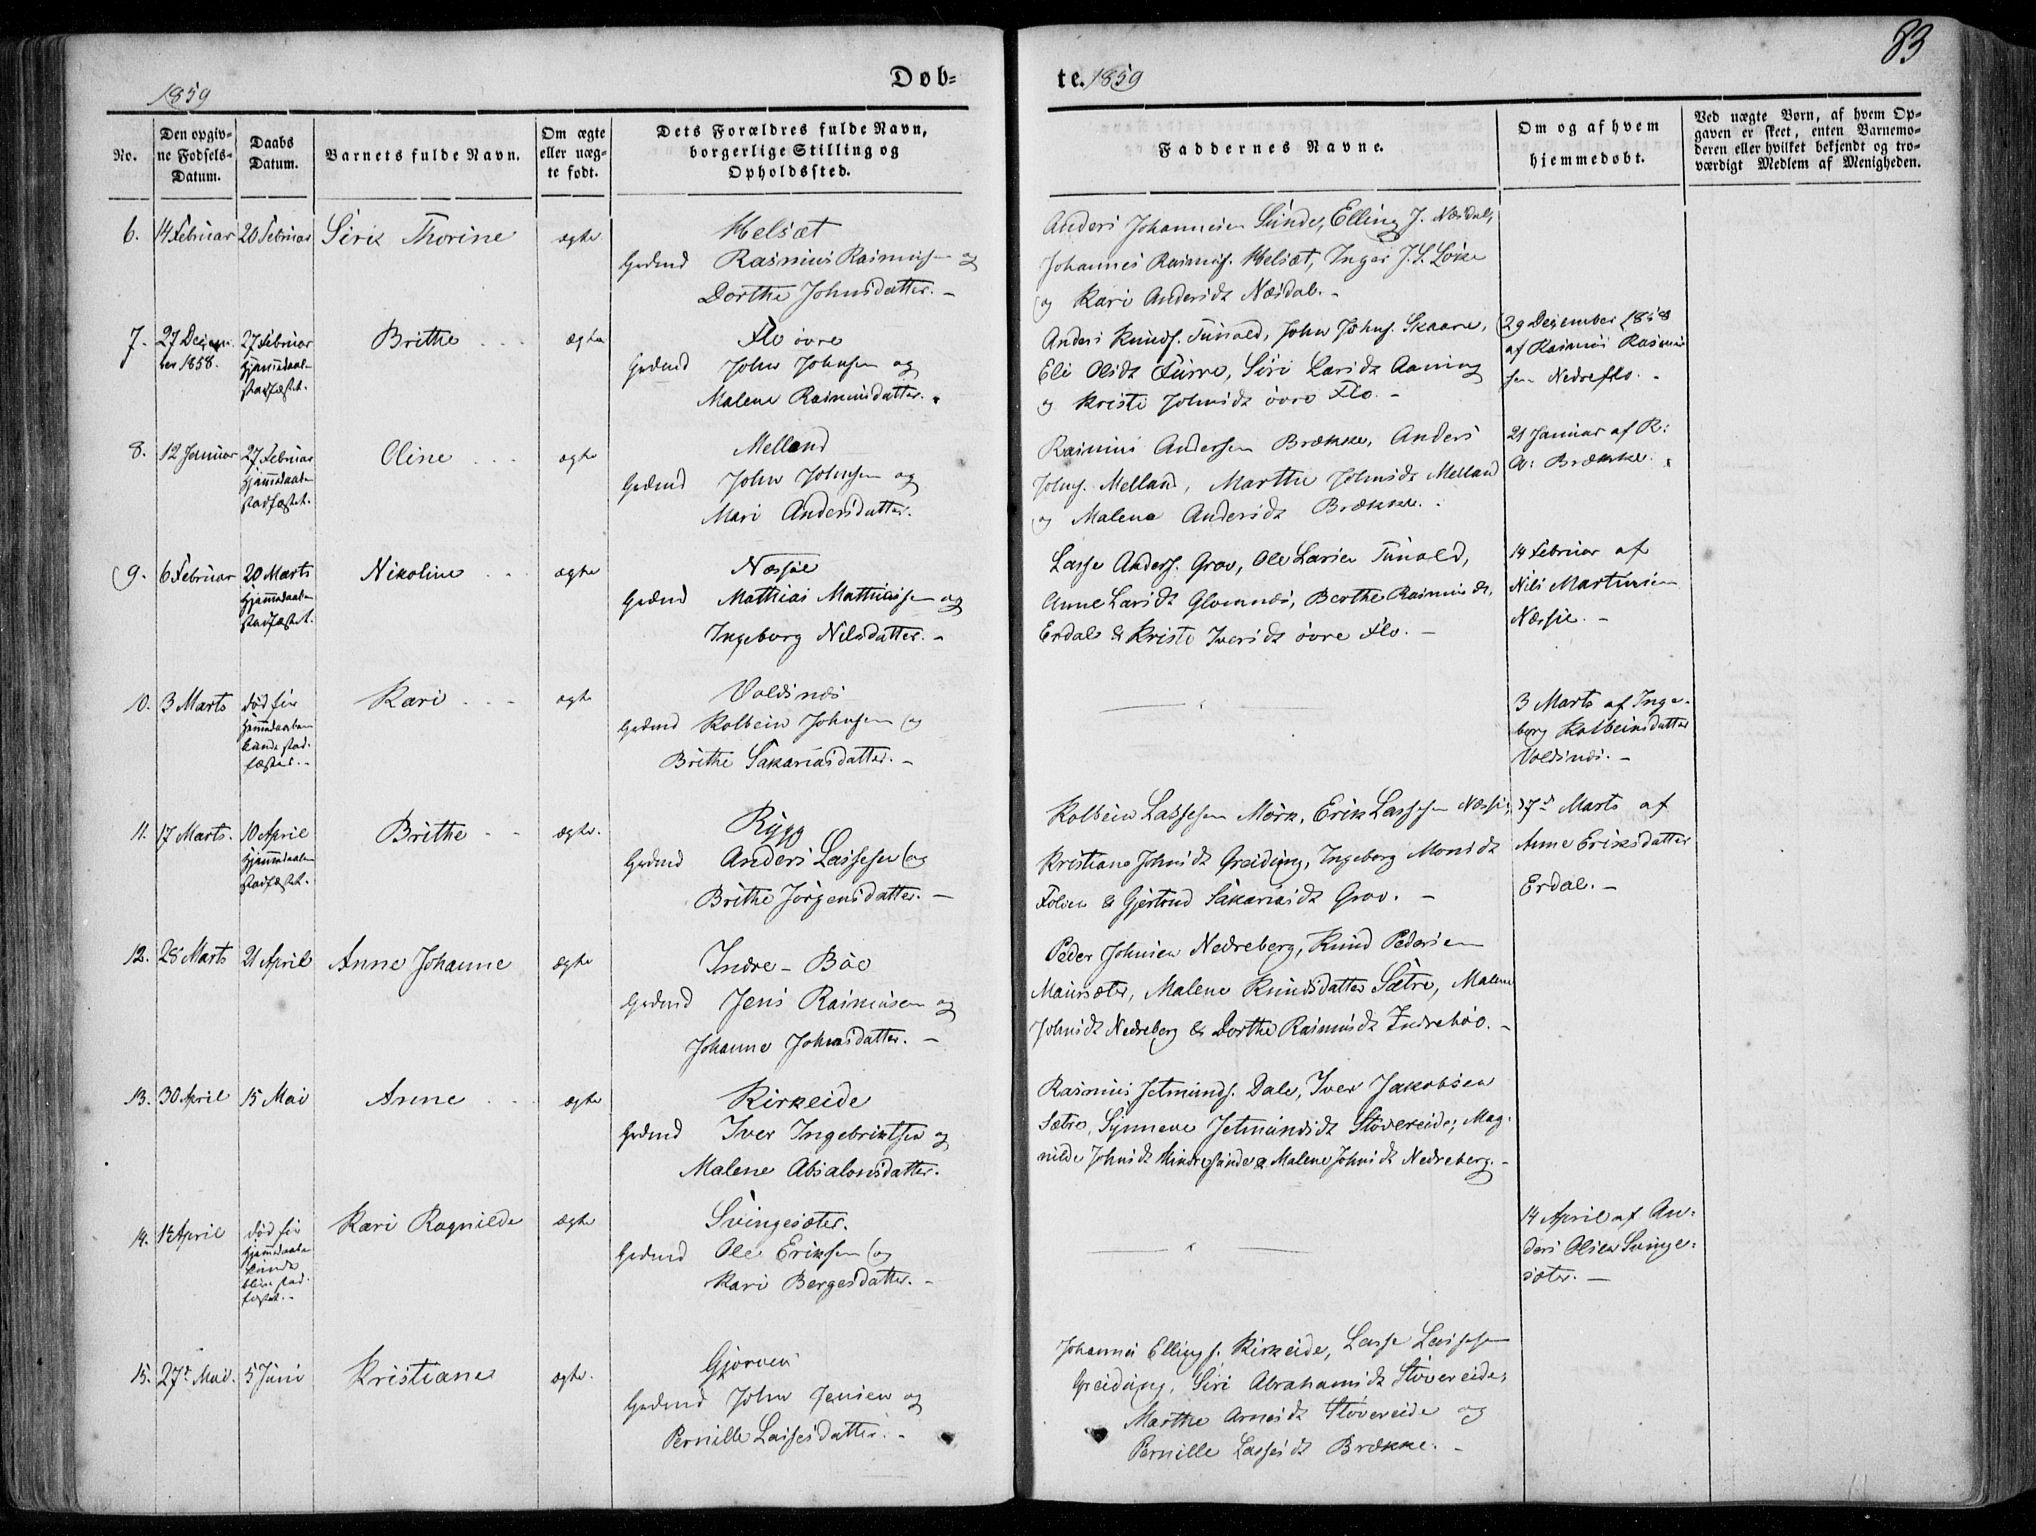 83
1859 Døb= te. 1859
No.
Den opgiv-
ne Fødsels-
Datum.
Daabs
Datum.
Barnets fulde Navn.
Om ægte
eller uæg-
te født.
Dets Forældres fulde Navn,
borgerlige Stilling og
Opholdssted.
Faddernes Navne.
Om og af hvem
hjemmedøbt.
Ved uægte Børn, af hvem Op-
gaven er skeet, enten Barnemo-
deren eller hvilket bekjendt og tro-
værdigt Medlem af Menigheden.
6. 14 Februar 20 Februar Siri Thorine ægte
Helsæt
Grdmd Rasmus Rasmusen og
Dorthe Johnsdatter. -
Anders Johannesen Sunde, Elling J. Næsdal,
Johannes Rasmus. Helsæt, Inger J.
og Kari Andersdt Næsdal. -
7. 27 Decem
ber 1858.
27 Februar
hjemmedaaben
stadfæstet.
Brithe ægte
Flo øvre
Grdmd John Johnsen og
Malene Rasmusdatter.
Anders Knuds. Tunold, John Johns. Skaare,
Eli Olsdt Furve, Siri Larsdt Aaning
og Kristi Johnsdt øvre Flo. -
29 December 1858
af Rasmus Rasmus
sen Nedreflo. -
8. 12 Januar 27 Februar
hjemmedaaben
stadfæstet.
Oline ægte
Melland
Grdmd John Johnsen og
Mari Andersdatter.
Rasmus Andersen Brække, Anders
Johns. Melland, Marthe Johnsdt Melland
og Malene Andersdt Brække.
21 Januar af R:
A: Brække.
9. 6 Februar 20 Marts
hjemmedaaben
stadfæstet.
Nikoline ægte
Næssje
Grdmd Mathias Mathiassen og
Ingeborg Nilsdatter. -
Lasse Anders. Grov, Ole Larsen Tunold,
Anne Larsdt Glomnæs, Berthe Rasmusdt,
Erdal & Kristi Iversdt øvre Flo. -
14 Februar af
Nils Martinsen
Næssje. -
10. 3 Marts død før
hjemmedaaben
kunde stad-
fæstes. -
Kari ægte
Voldsnæs
Grdmd Kolbein Johnsen og
Brithe Sakariasdatter. -
3 Marts af Inge-
borg Kolbeinsdatter
Voldsnæs. -
11. 17 Marts. 10 April
hjemmedaaben
stadfæstet.
Brithe ægte.
Rygg
Grdmd Anders Lassesen og
Brithe Jørgensdatter. -
Kolbein Lassesen Mørk, Erik Lassesen Næssje,
Kristiane Johnsdt Greiding, Ingeborg Monsdt
Folven & Gjertrud Sakariasdt Grov. -
17de Marts af
Anne Eriksdatter
Erdal. -
12. 28 Marts 21 April Anne Johanne ægte
Indre-Bøe
Grdmd Jens Rasmusen og
Johanne Johnsdatter. -
Peder Johnsen Nedreberg, Knud Pedersen
Maursæter, Malene Knudsdatter Sætre, Malene
Johnsdt Nedreberg & Dorthe Rasmusdt Indrebøe. -
13. 30 April 15 Mai Anne ægte
Kirkeide
Grdmd Iver Ingebriktsen og
Malene Absalonsdatter.
Rasmus Jetmunds. Dale, Iver Jakobsen
Sætre, Synneve Jetmundsdt Støvereide, Mag-
nilde Johnsdt Hindresunde & Malene Johnsdt Nedreberg. -
14. April død før
hjemmedaaben
kunde
blive stad-
fæstet. -
Kari Ragnilde ægte
Svingesæter.
Grdmd Ole Eriksen og
Kari Bergesdatter. -
14 April af An-
ders Olsen Svinge-
sæter. -
15. 27de Mai. 5 Juni Kristiane ægte.
Gjørven
Grdmd John Jensen og
Pernille Lassesdatter. -
Johannes Ellings. Kirkeide, Lasse Lassesen
Greiding, Siri Abrahamsdt Støvereide,
Marthe Arnesdt Støvereide og
Pernille Lassesdt Brække. -